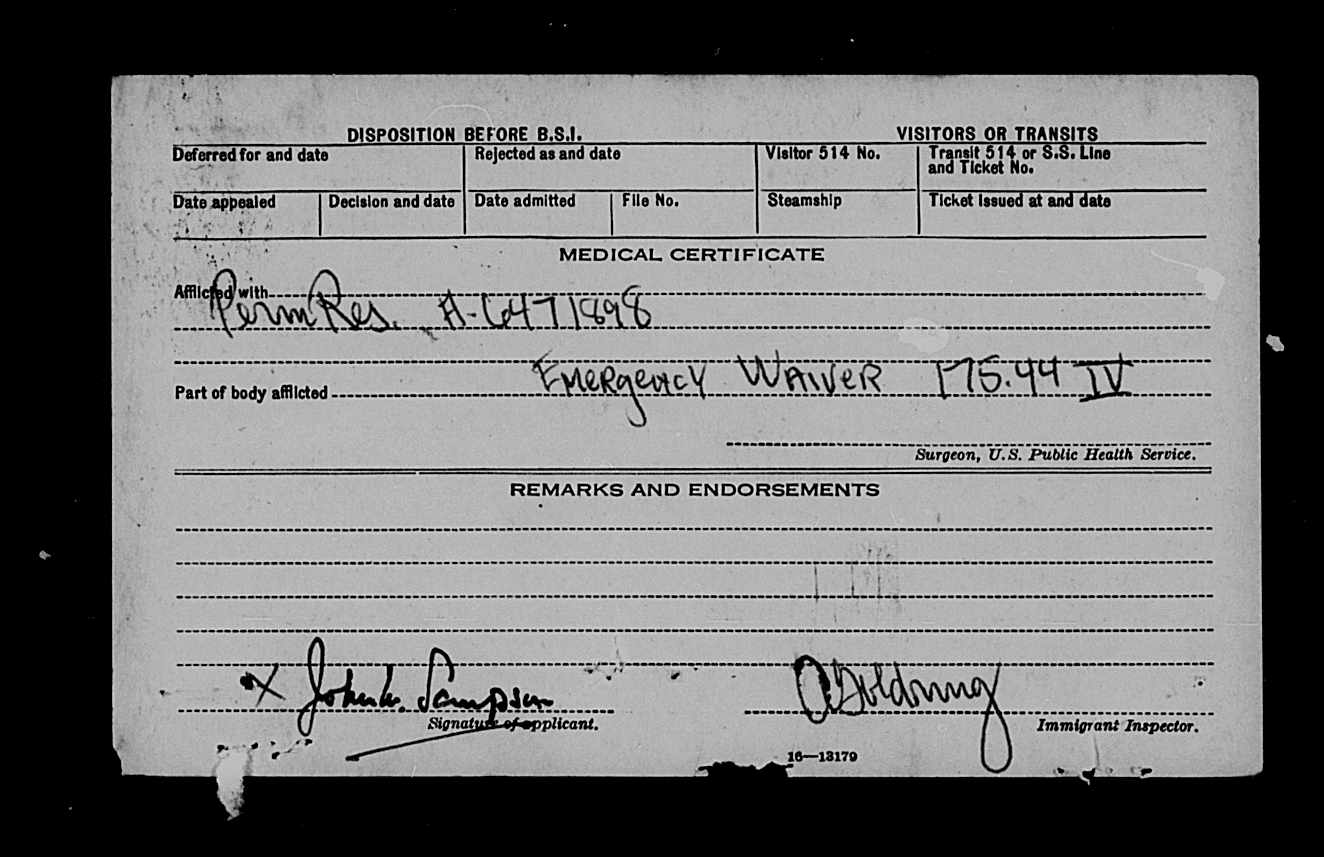 DISPOSITION BEFORE B.S.I. VISITORS OR TRANSITS
Deferred for and date Rejected as and date Visitor 514 No. Transit 514 or S.S. Line
and Ticket No.
Date appealed Decision and date Date admitted File No. Steamship Ticket issued at and date
MEDICAL CERTIFICATE
Afflicted with
Perm Res. A-6471898
Part of body afflicted Emergency Waiver 175.44 IV
Surgeon, U.S. Public Health Service.
REMARKS AND ENDORSEMENTS
X John W. Sampson
Signature of applicant. Immigrant Inspector.
16—13179